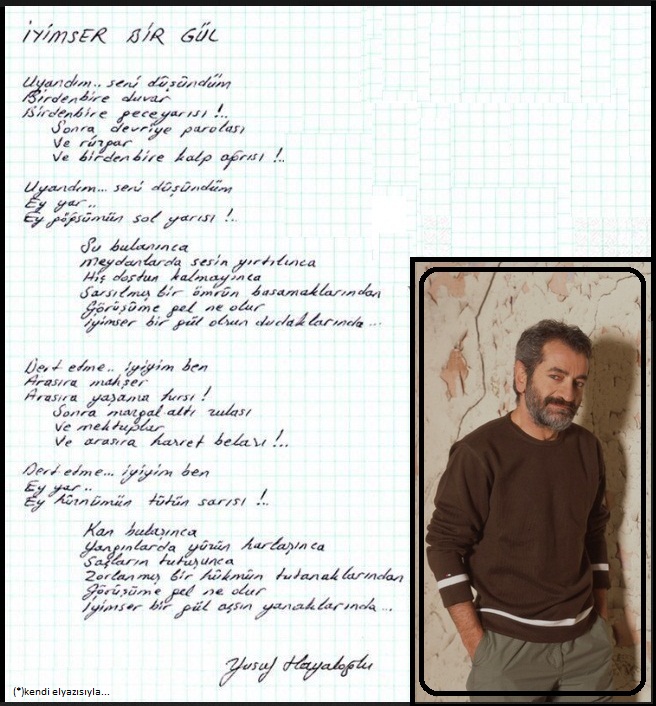 İYİMSER BİR GÜL
Uyandım.. seni düşündüm
Birdenbire duvar
Birdenbire geceyarısı !..
Sonra devriye parolası
Ve rüzgar
Ve birdenbire kalp ağrısı !..
Uyandım... seni düşündüm
Ey yar..
Ey göğsümün sol yarısı !..
Su bulanınca
Meydanlarda sesin yırtılınca
Hiç dostun kalmayınca
Sarsılmış bir ömrün basamaklarından
Görüşüme gel ne olur
İyimser bir gül olsun dudaklarında...
Dert etme.. iyiyim ben
Arasıra mahşer
Arasıra yaşama hırsı !
Sonra mazgal altı voltası
Ve mektuplar
Ve arasıra hasret belası !..
Dert etme... iyiyim ben
Ey yar..
Ey hüznümün tütün sarısı !..
Kan bulaşınca
Yangınlarda yüzün harlaşınca
Saçların tutuşunca
Zorlanmış bir hükmün tutanaklarından
Görüşüme gel ne olur
İyimser bir gül açsın yanaklarında...
Yusuf Hayaloğlu
(*)kendi elyazısıyla...